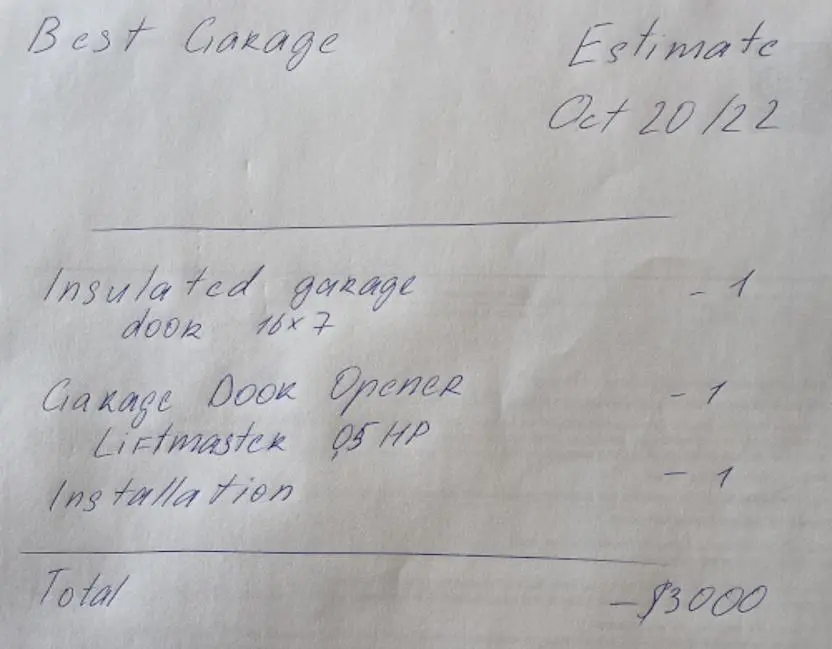 Best Garage
Estimate
Oct 20/22
Insulated garage - 1
door 16x7
Garage Door Opener - 1
Liftmaster 0,5 HP
Installation - 1
Total - $3000